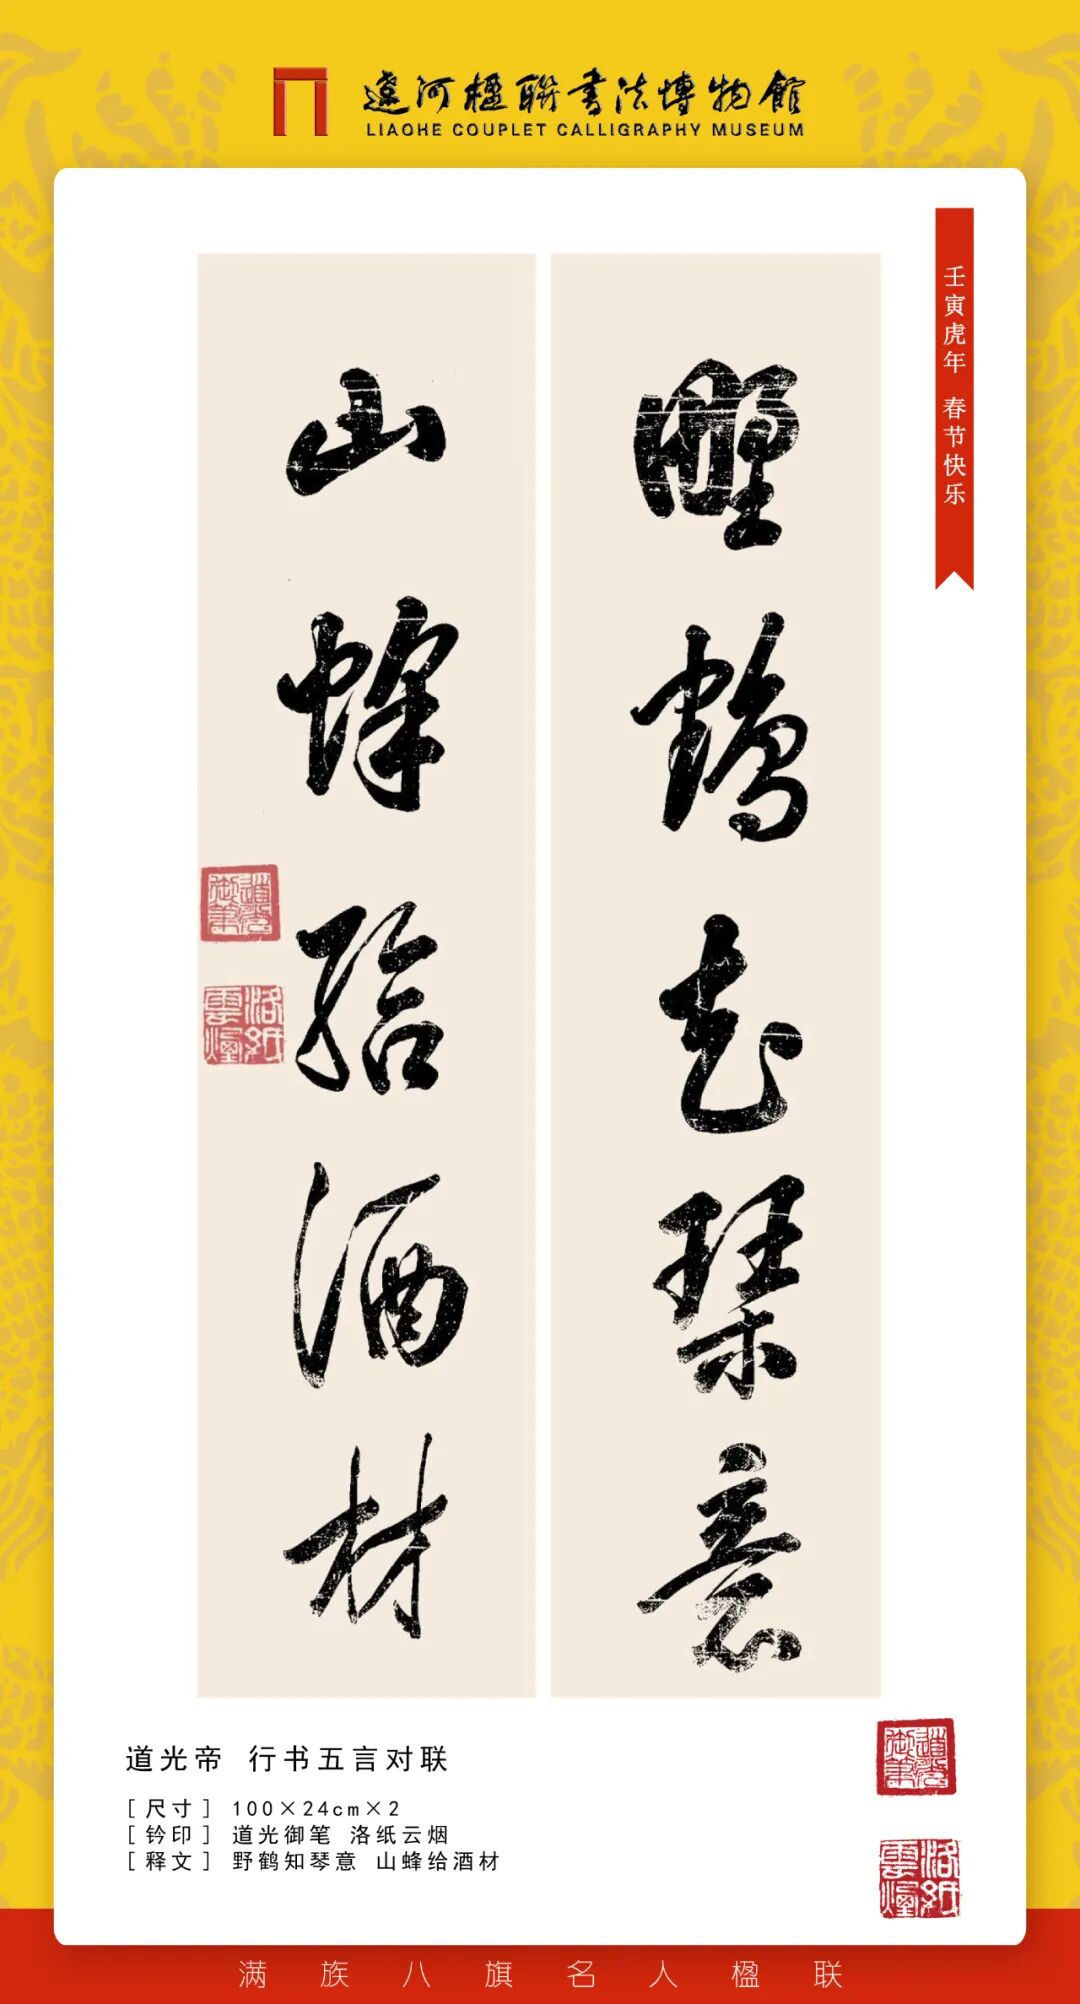 遼河楹聯書法博物館
LIAOHE COUPLET CALLIGRAPHY MUSEUM
壬寅虎年 春节快乐
野鶴知琴意
山蜂給酒材
道光御筆
洛紙雲煙
道光帝 行书五言对联
[尺寸] 100×24cm×2
[钤印] 道光御笔 洛纸云烟
[释文] 野鹤知琴意 山蜂给酒材
道光御筆
洛紙雲煙
满族八旗名人楹联